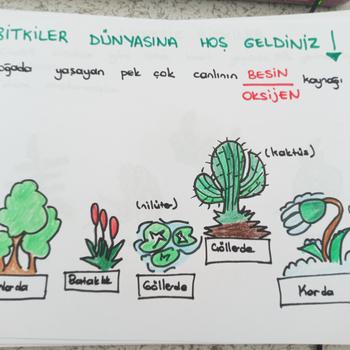 BİTKİLER DÜNYASINA HOŞ GELDİNİZ!
oğada yaşayan pek çok canlının BESİN kaynağı
OKSİJEN
(kaktüs)
(nilüfer)
Çöllerde
Bataklık
Göllerde
Karda